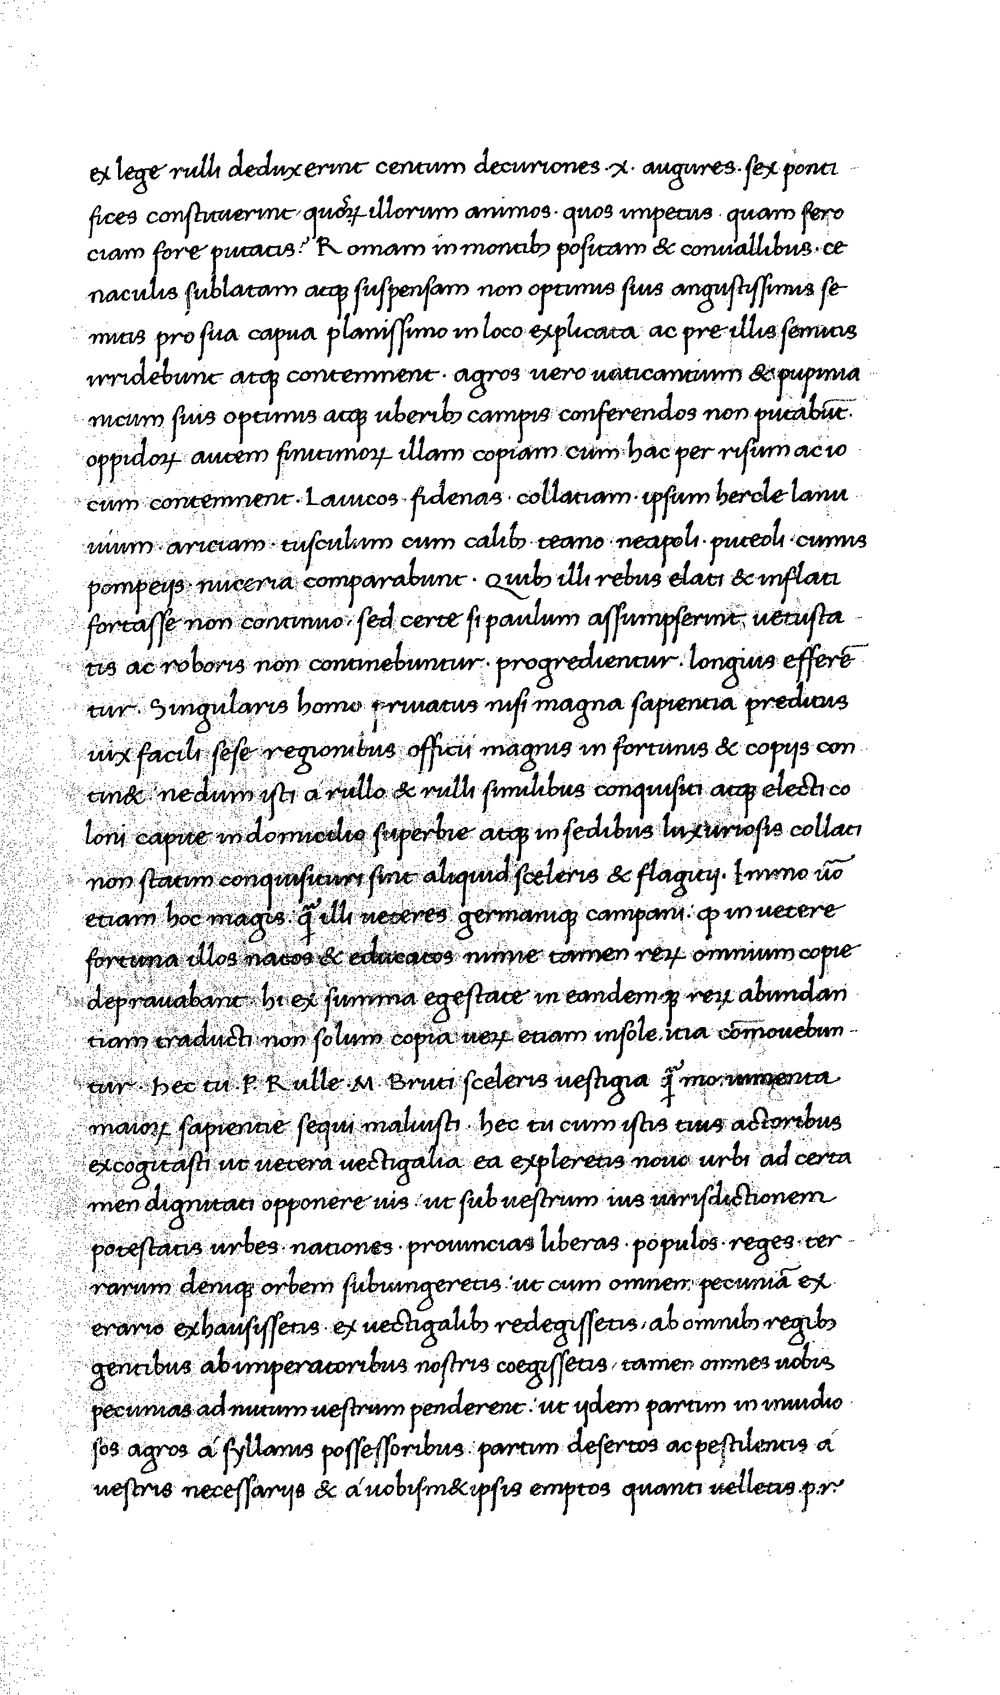 ex lege rulli deduxerint centum decuriones · x · augures · sex ponti
fices constituerint quoꝝ illorum animos · quos impetus · quam fero
ciam fore putatis? Romam in montibꝫ positam & conuallibus · ce
naculis sublatam atqꝫ suspensam non optimis suis angustissimis se
mitis pro sua capua planissimo in loco explicata ac pre illis semitis
irridebunt atqꝫ contemnent · agros uero uaticantium & pupinia
nicum suis optimis atqꝫ uberibꝫ campis conferendos non putabūt ·
oppidoꝝ autem finitimoꝝ illam copiam cum hac per risum ac io
cum contemnent · Lauicos · fidenas · collatiam · ipsum hercle lanu
uium · ariciam · tusculum cum calibꝫ teano neapoli · puteoli · cumis
pompeijs · nuceria comparabunt · Quibꝫ illi rebus elati & inflati
fortasse non continuo · sed certe si paulum assumpserint uetusta
tis ac roboris non continebuntur · progredientur · longius efferē
tur · Singularis homo priuatus nisi magna sapientia preditus
uix facili sese regionibus officii magnis in fortunis & copijs con
tin& · nedum isti a rullo & rulli similibus conquisiti atqꝫ electi co
loni capue in domicilio superbie atqꝫ in sedibus luxuriosis collati
non statim conquisituri sint aliquid sceleris & flagitij · Immo ūo
etiam hoc magis · ꝗ̄ illi ueteres germaniqꝫ campani: ꝙ in uetere
fortuna illos natos & educatos nimie tamen reꝝ omnium copie
deprauabant · hi ex summa egestate in eandemqꝫ reꝝ abundan
tiam traducti non solum copia ueꝝ etiam insolentia cōmouebun
tur · Hec tu P. Rulle · M. Bruti sceleris uestigia ꝗ̄ monumenta
maioꝝ sapientie sequi maluisti · hec tu cum istis tuis actoribus
excogitasti ut uetera uectigalia ea expleretis nouo urbi ad certa
men dignitati opponere uis: ut sub uestrum ius iurisdictionem
potestatis urbes · nationes · prouincias liberas · populos · reges · ter
rarum deniqꝫ orbem subiungeretis: ut cum omnem pecuniā ex
erario exhausissetis ex uectigalibꝫ redegissetis, ab omnibꝫ regibꝫ
gentibus ab imperatoribus nostris coegissetis, tamen omnes uobis
pecunias ad nutum uestrum penderent: ut ijdem partim in inuidio
sos agros á syllanis possessoribus · partim desertos ac pestilentis á
uestris necessarijs & á uobism& ipsis emptos quanti uelletis · p.r.